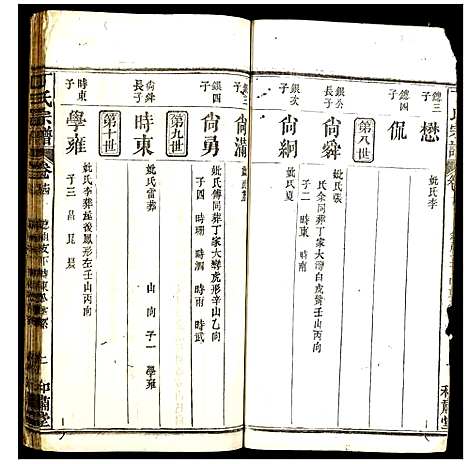 總三子
懋
妣氏李
總四子
侃
第八世
銀公長子
尙舜
妣氏張
氏余同葬丁家大灣白虎嘴壬山丙向
子二 時東 時南
銀次子
尙綱
妣氏夏
銀三子
尙滿
銀四子
尙勇
妣氏傅同葬丁家大灣虎形辛山乙向
子四 時珊 時泗 時雨 時武
第九世
尙舜長子
時東
妣氏雷葬
山向 子一 學雍
第十世
時東子
學雍
妣氏李葬延後鳳形左壬山丙向
子三
丁氏宗譜
卷